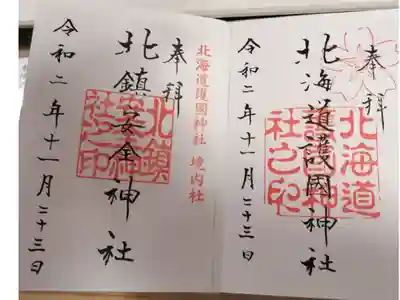 奉拝
北海道護國神社
北海道護國神社之印
令和二年十一月二十三日
奉拝
北海道護國神社 境内社
北鎮安全神社
令和二年十一月二十三日